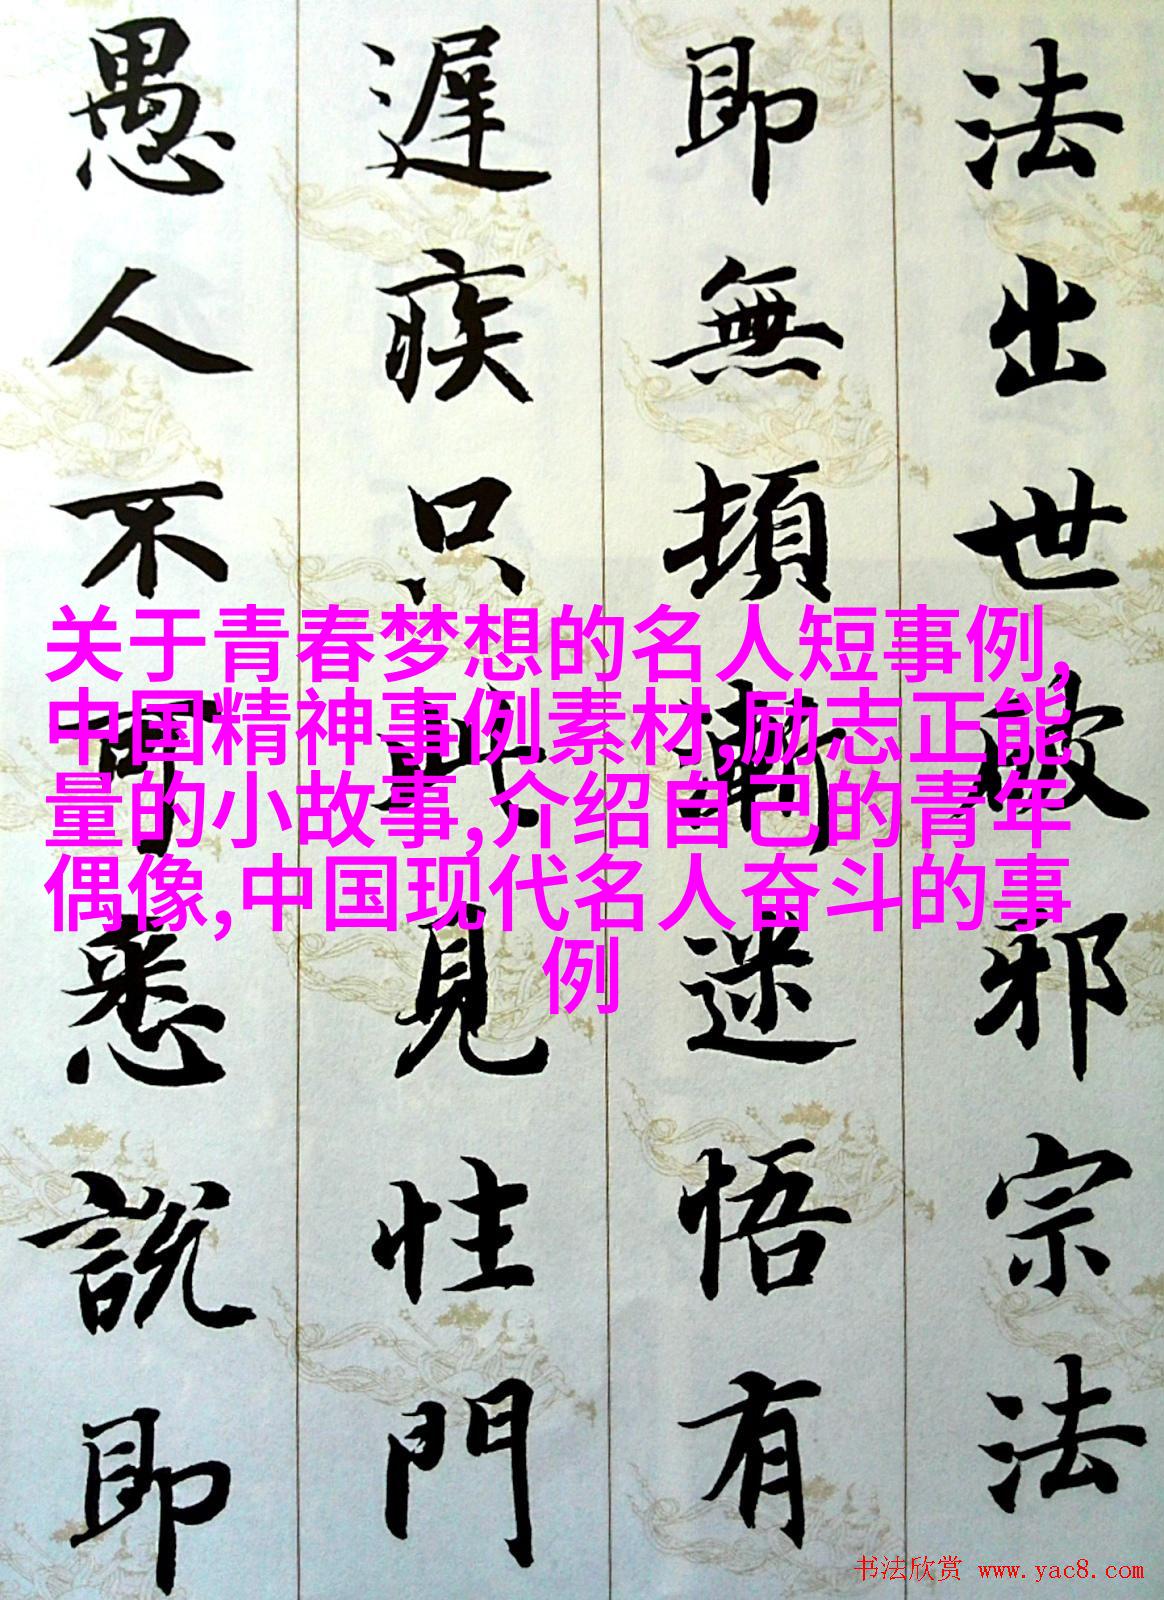 法出世破邪宗法
即無頓漸迷悟有
遲疾只此見性門
愚人不可悉說即
关于青春梦想的名人短事例,
中国精神事例素材,励志正能
量的小故事,介绍自己的青年
偶像,中国现代名人奋斗的事
例
书法欣赏 www.yac8.com